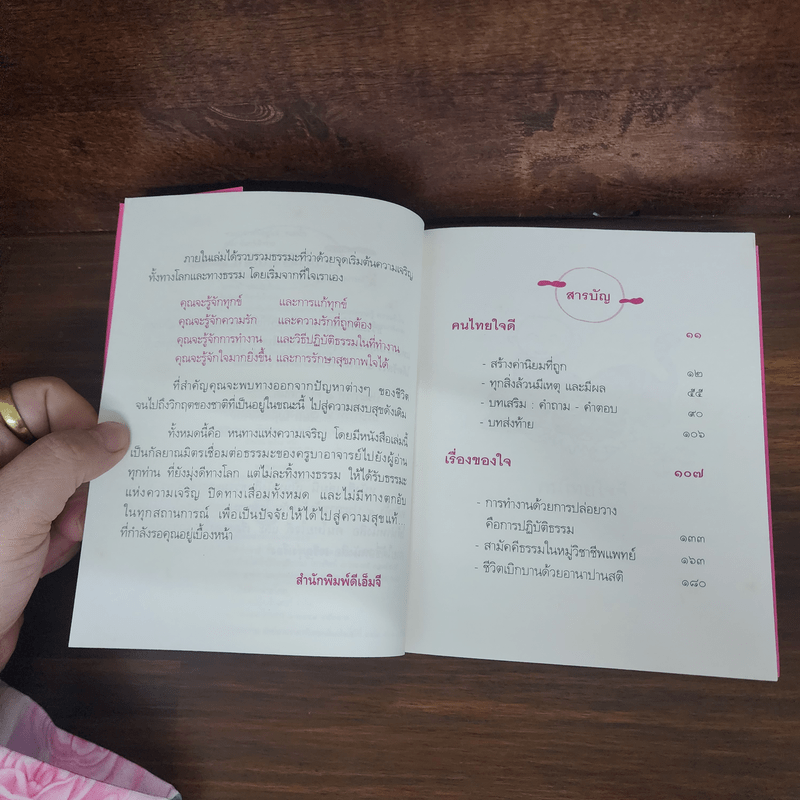 ภายในเล่มได้รวบรวมธรรมะที่ว่าด้วยจุดเริ่มต้นความเจริญ
ทั้งทางโลกและทางธรรม โดยเริ่มจากที่ใจเราเอง
คุณจะรู้จักทุกข์ และการแก้ทุกข์
คุณจะรู้จักความรัก และความรักที่ถูกต้อง
คุณจะรู้จักการทำงาน และวิธีปฏิบัติธรรมในที่ทำงาน
คุณจะรู้จักใจมากยิ่งขึ้น และการรักษาสุขภาพใจได้
ที่สำคัญคุณจะพบทางออกจากปัญหาต่างๆ ของชีวิต
จนไปถึงวิกฤตของชาติที่เป็นอยู่ในขณะนี้ ไปสู่ความสงบสุขดังเดิม
ทั้งหมดนี้คือ หนทางแห่งความเจริญ โดยมีหนังสือเล่มนี้
เป็นกัลยาณมิตรเชื่อมต่อธรรมะของครูบาอาจารย์ไปยังผู้อ่าน
ทุกท่าน ที่ยังมุ่งดีทางโลก แต่ไม่ละทิ้งทางธรรม ให้ได้รับธรรมะ
แห่งความเจริญ ปิดทางเสื่อมทั้งหมด และไม่มีทางตกอับ
ในทุกสถานการณ์ เพื่อเป็นปัจจัยให้ได้ไปสู่ความสุขแท้...
ที่กำลังรอคุณอยู่เบื้องหน้า
สำนักพิมพ์ดีเอ็มจี
สารบัญ
คนไทยใจดี ๑๑
- สร้างค่านิยมที่ถูก ๑๒
- ทุกสิ่งล้วนมีเหตุ และมีผล ๕๕
- บทเสริม : คำถาม - คำตอบ ๙๐
- บทส่งท้าย ๑๐๖
เรื่องของใจ ๑๐๗
- การทำงานด้วยการปล่อยวาง
คือการปฏิบัติธรรม ๑๓๓
- สามัคคีธรรมในหมู่วิชาชีพแพทย์ ๑๖๓
- ชีวิตเบิกบานด้วยอานาปานสติ ๑๘๐